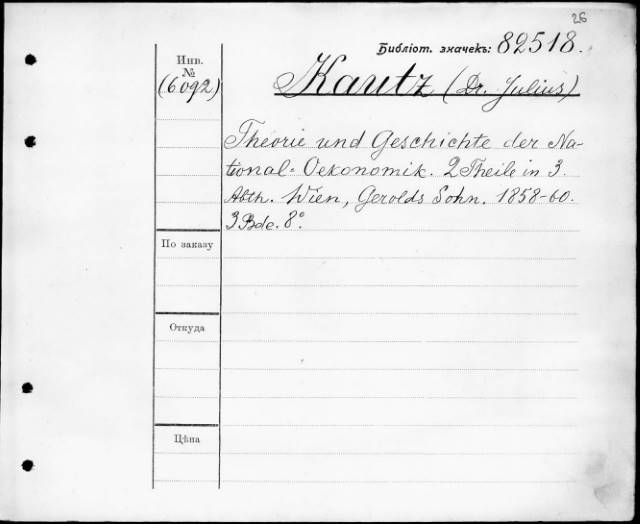 26
Библіот. значекъ: 82518.
Инв.
№
(6092)
Kautz (Dr. Julius)
Theorie und Geschichte der Na-
tional-Oekonomik. 2 Theile in 3
Abth. Wien, Gerolds Sohn. 1858-60.
3 Bde. 8°.
По заказу
Откуда
Цѣна